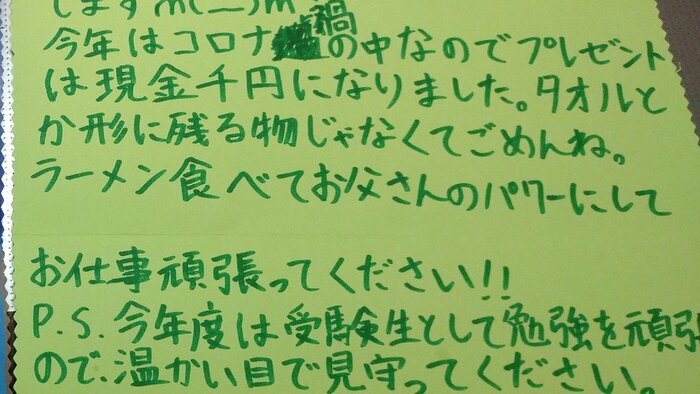 します m(_ _)m
今年はコロナ禍の中なのでプレゼント
は現金千円になりました。タオルと
か形に残る物じゃなくてごめんね。
ラーメン食べてお父さんのパワーにして
お仕事頑張ってください!!
P.S.今年度は受験生として勉強を頑張
ので、温かい目で見守ってください。